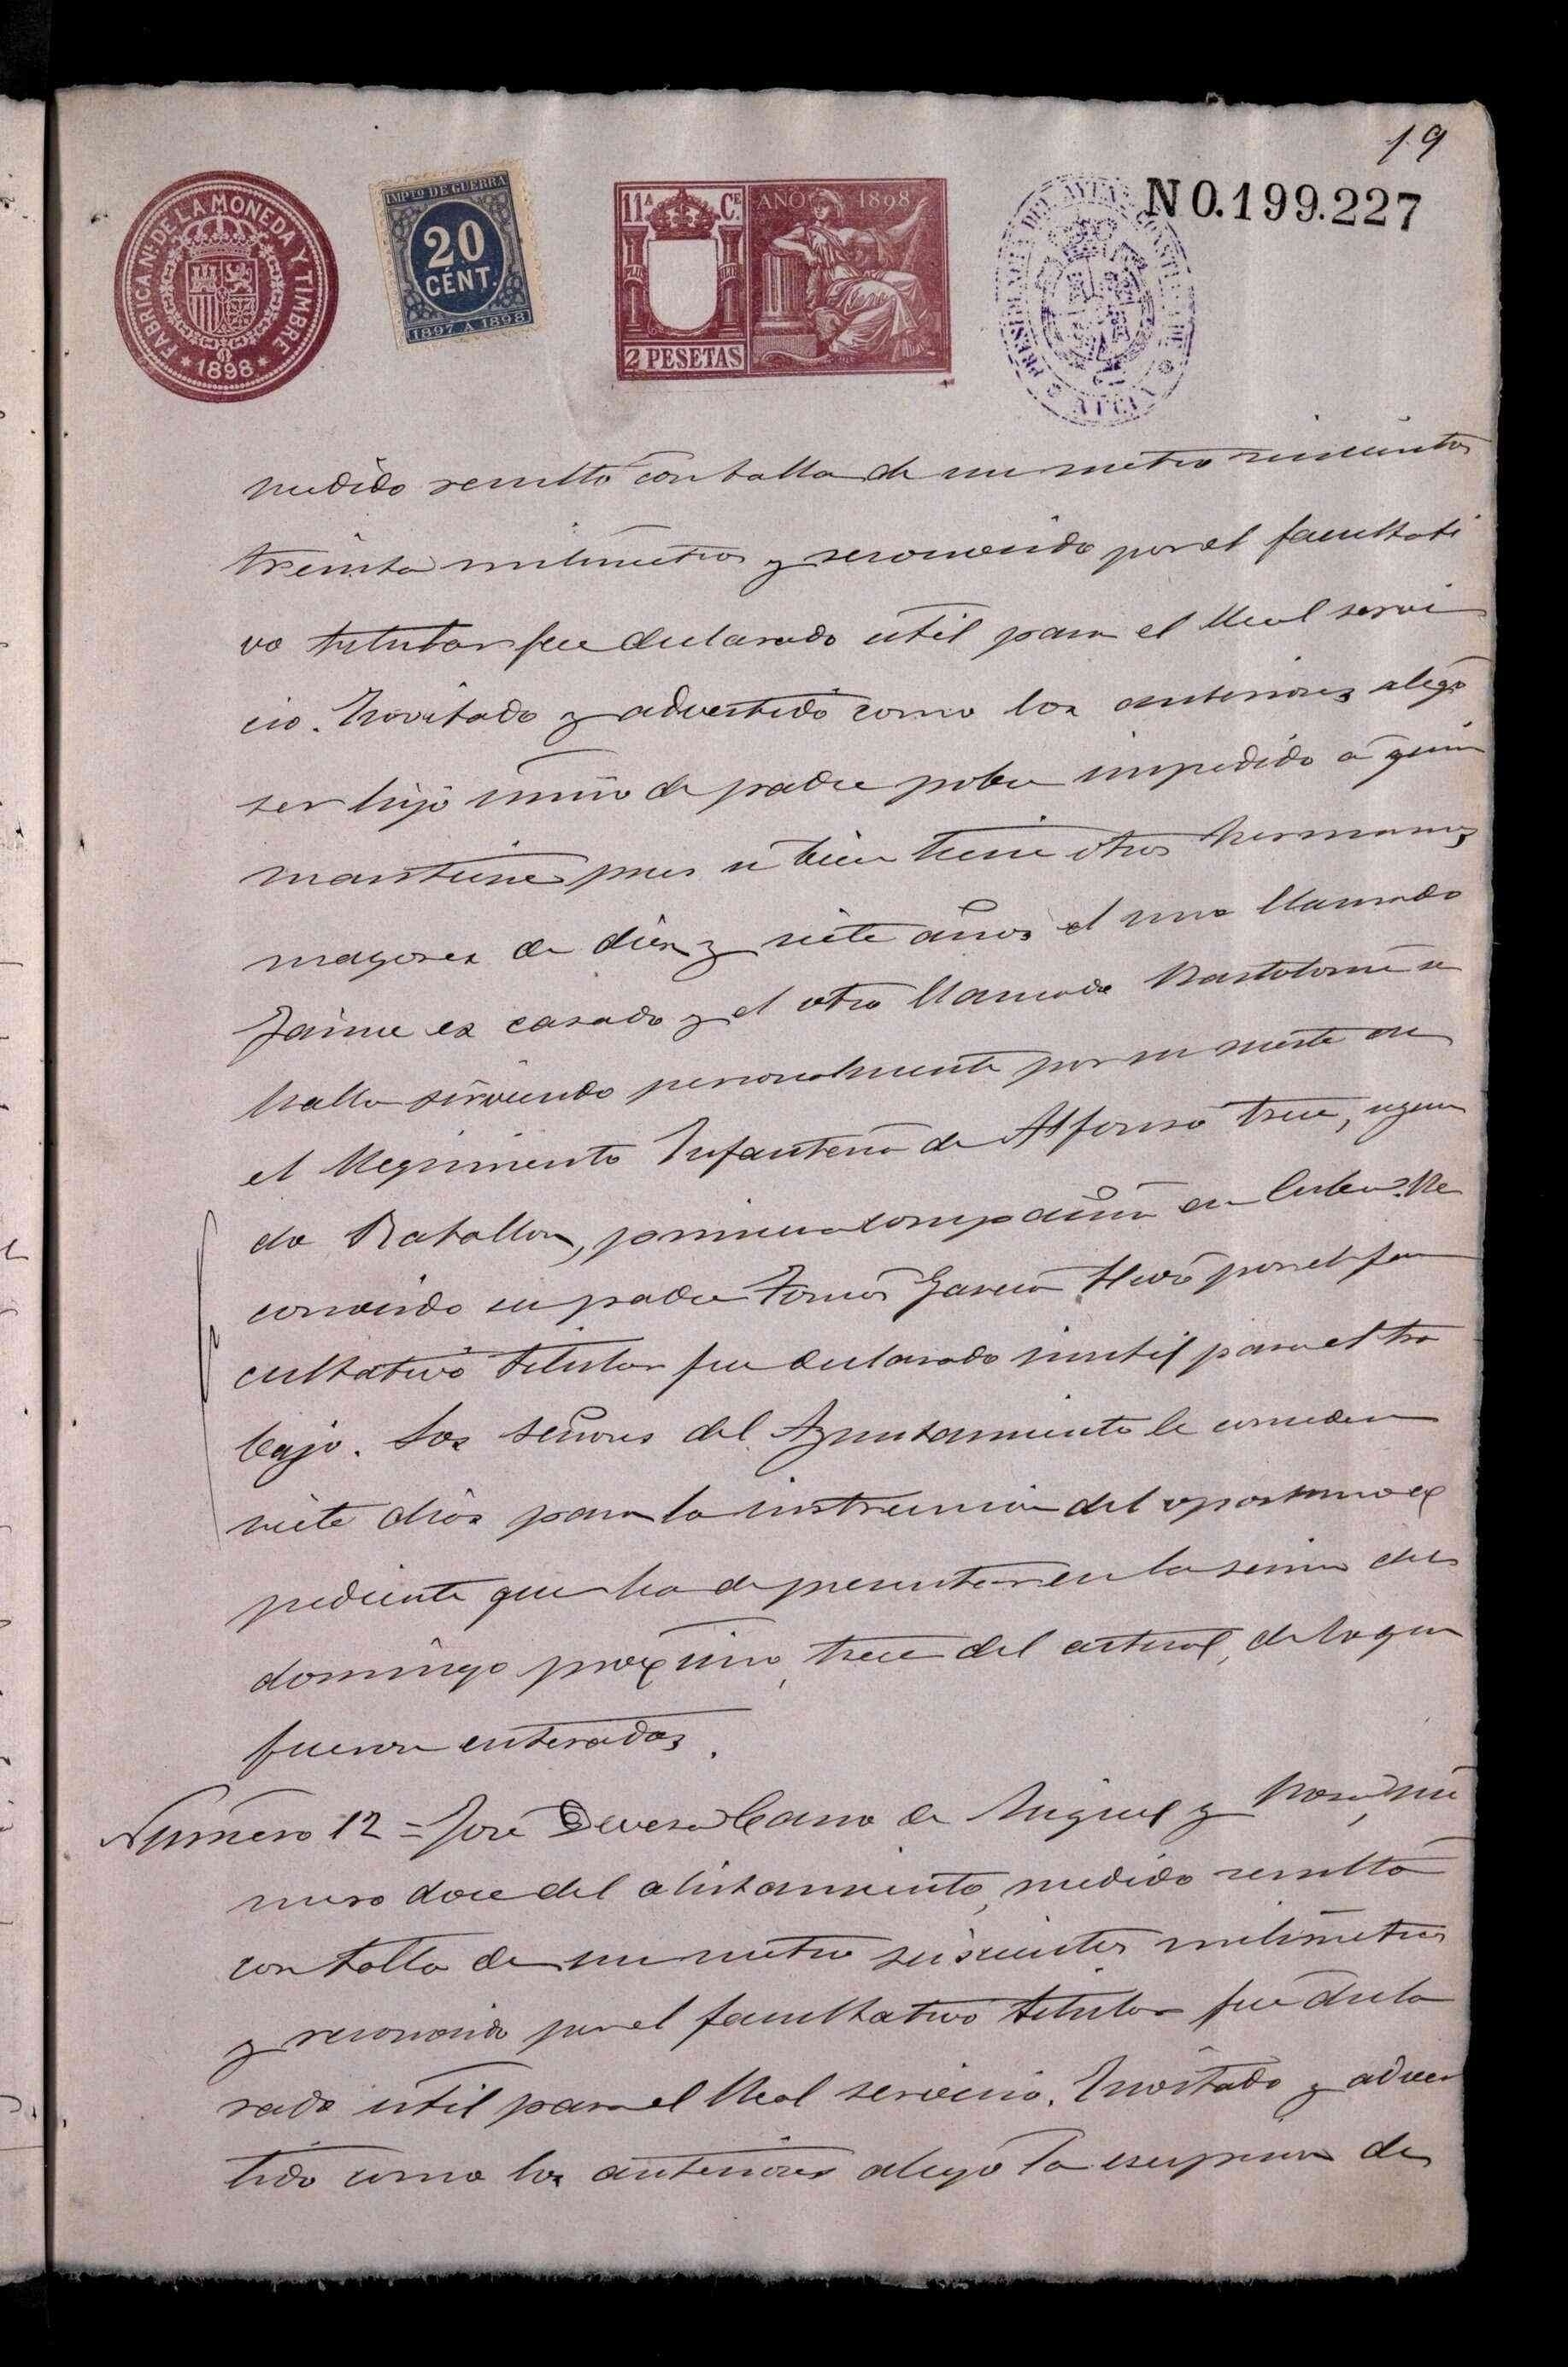 19
N 0.199.227
FABRICA Nl. DE LA MONEDA Y TIMBRE
1898
IMPTO DE GUERRA
20
CÉNT.
1897 A 1898
11A CE.
AÑO 1898
2 PESETAS
PRESIDENCIA DEL AYUNT
medido resultó con talla de un metro
treinta milimetros y reconocido por el facultati
vo titular fue declarado util para el Real servi
cio. Invitado y advertido como los anteriores alegó
ser hijo único de padre pobre impedido a quien
mantiene pues si bien tiene otros hermanos
mayores de diez y siete años el uno llamado
Jaime es casado y el otro llamado Bartolomé se
halla sirviendo personalmente por su suerte en
el Regimiento Infanteria de Alfonso trece, segun
do Batallon, primera compañia en Cuba. Re
conocido su padre Tomás Garcia por el fa
cultativo titular fue declarado inutil para el tra
bajo. Los señores del Ayuntamiento le conceden
siete dias para la instruccion del oportuno ex
pediente que ha de presentar en la sesion del
domingo proximo, trece del actual, de lo que
fueron enterados.
Número 12 = José Devesa Cano de Miguel y Rosa, nú
mero doce del alistamiento, medido resultó
con talla de un metro seiscientos milimetros
y reconocido por el facultativo titular fue decla
rado útil para el Real servicio. Invitado y adver
tido como los anteriores alegó la esepcion de